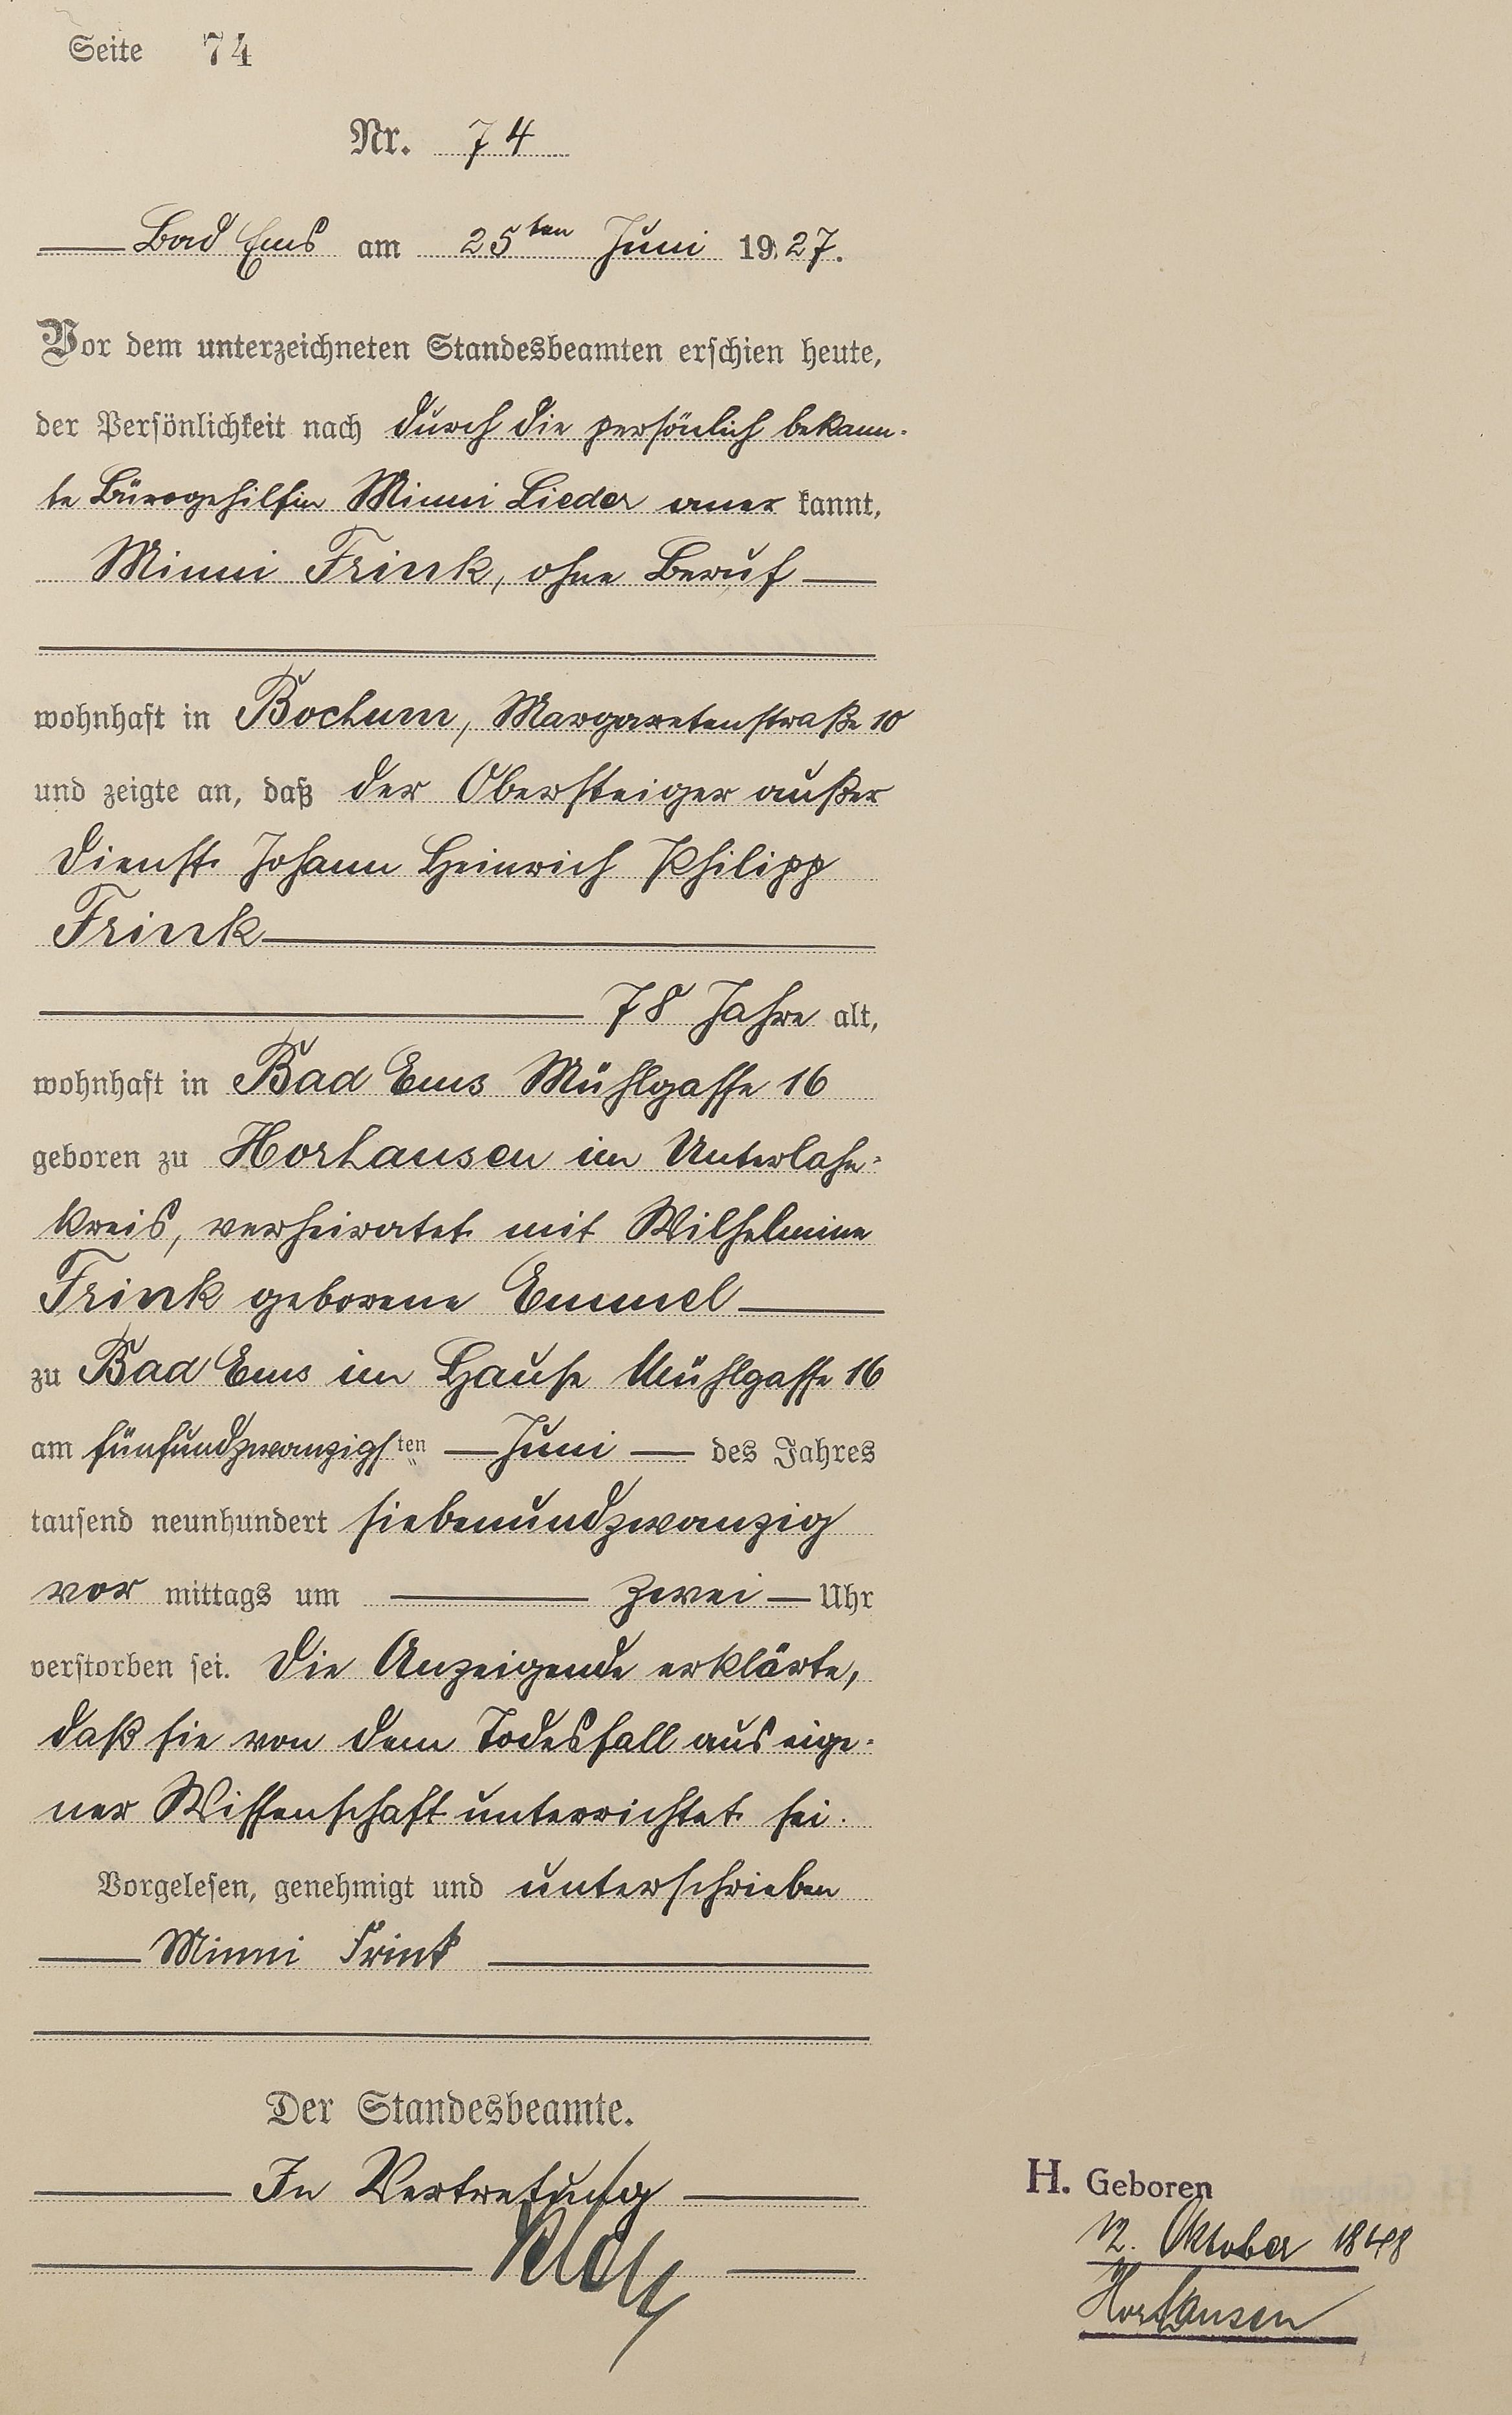 Seite 74
Nr. 74
Bad Ems am 25ten Juni 1927.
Vor dem unterzeichneten Standesbeamten erschien heute,
der Persönlichkeit nach durch die persönlich bekann-
te Bürogehilfin Minni Lieder aner kannt,
Minni Frink, ohne Beruf
wohnhaft in Bochum, Margaretenstraße 10
und zeigte an, daß der Obersteiger außer
Dienst Johann Heinrich Philipp
Frink
78 Jahre alt,
wohnhaft in Bad Ems Mühlgasse 16
geboren zu Horhausen im Unterlahn-
kreis, verheiratet mit Wilhelmine
Frink geborene Emmel
zu Bad Ems im Hause Mühlgasse 16
am fünfundzwanzigsten Juni des Jahres
tausend neunhundert siebenundzwanzig
vor mittags um zwei Uhr
verstorben sei. Die Anzeigende erklärte,
daß sie von dem Todesfall aus eige-
ner Wissenschaft unterrichtet sei.
Vorgelesen, genehmigt und unterschrieben
Minni Frink
Der Standesbeamte.
In Vertretung
H. Geboren
12. Oktober 1848
Horhausen